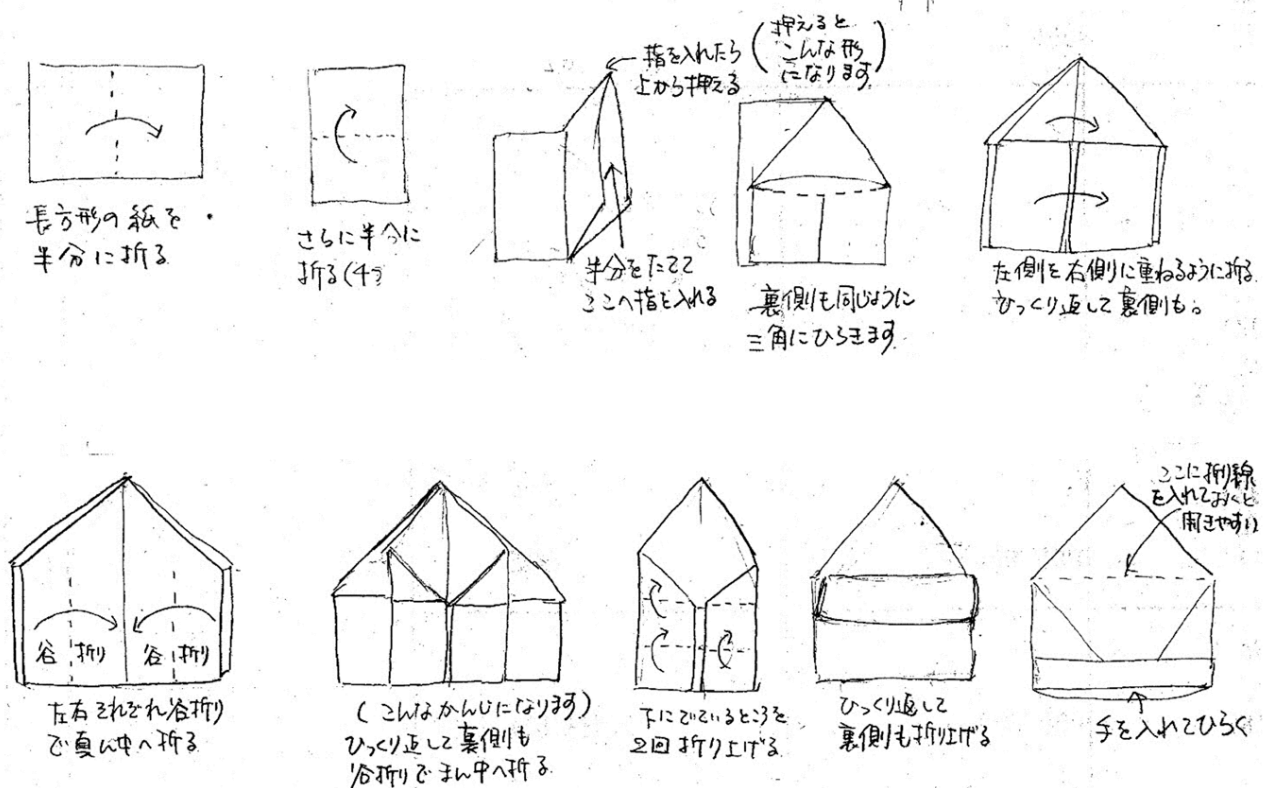 長方形の紙を
半分に折る
さらに半分に
折る(4つ
指を入れたら
上から押える
半分をたてて
ここへ指を入れる
(押えると
こんな形
になります)
裏側も同じように
三角にひらきます
左側を右側に重ねるように折る
ひっくり返して裏側も。
谷折り 谷折り
左右それぞれ谷折り
で真ん中へ折る
(こんなかんじになります)
ひっくり返して裏側も
谷折りでまん中へ折る
下にでているところを
2回折り上げる
ひっくり返して
裏側も折り上げる
ここに折り線
を入れておくと
開きやすい
手を入れてひらく